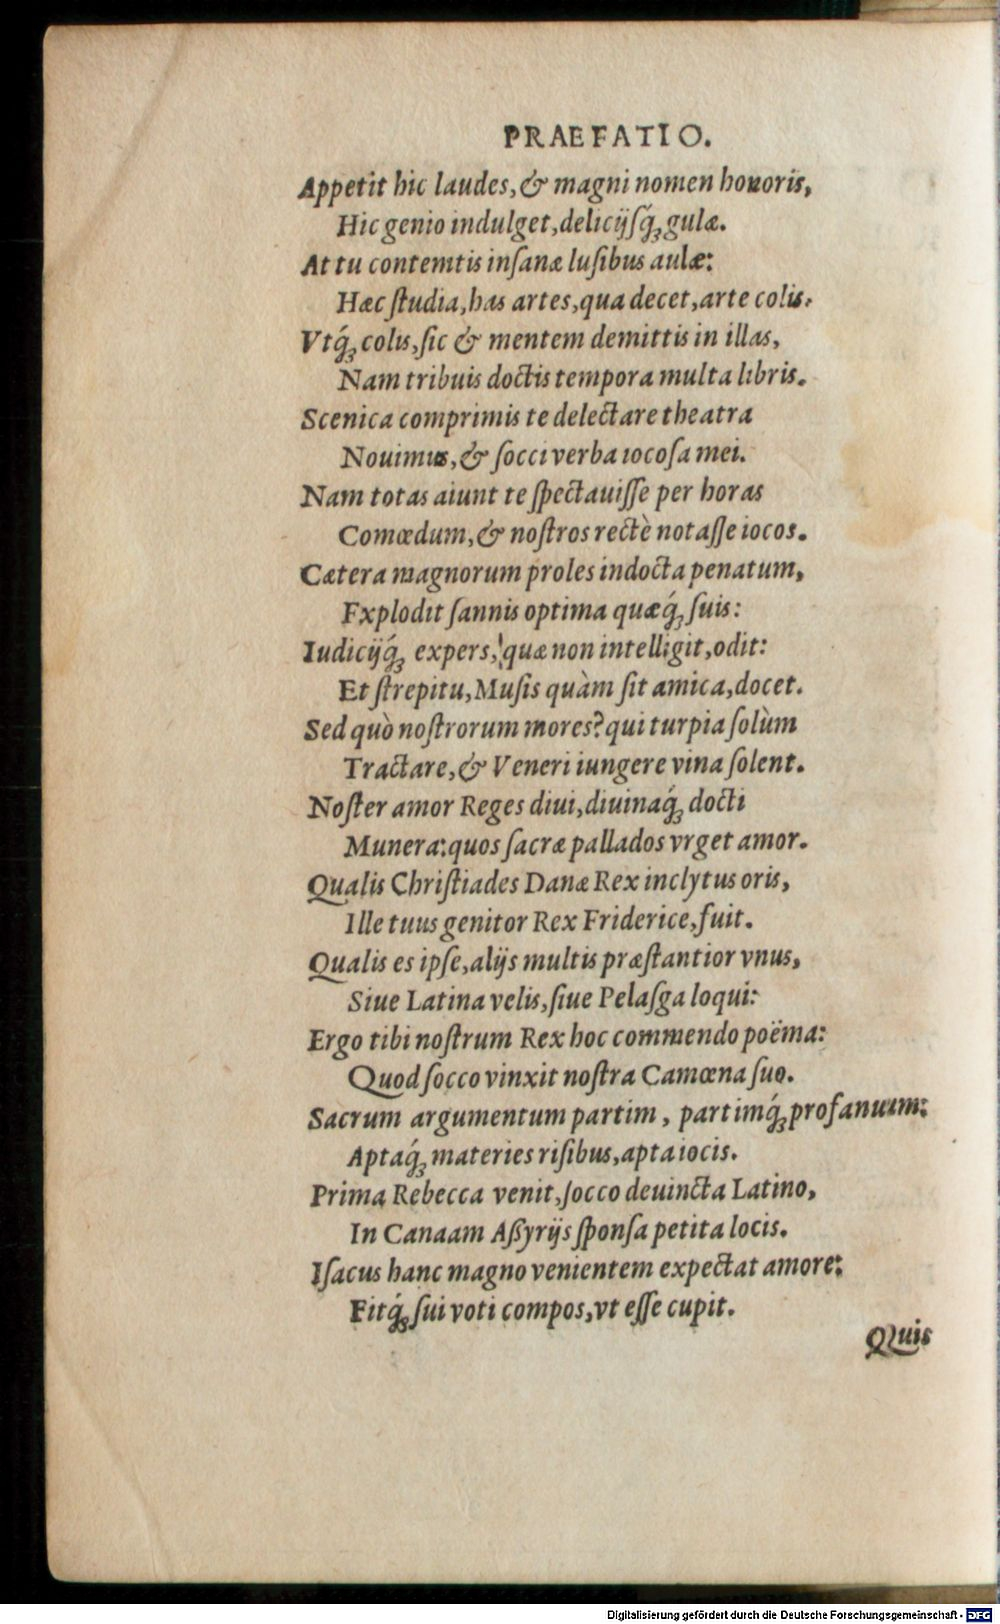 PRAEFATIO.
Appetit hic laudes, & magni nomen honoris,
Hic genio indulget, delicijsq́₃ gulæ.
At tu contemtis insanæ lusibus aulæ:
Hæc studia, has artes, qua decet, arte colis.
Vtq́₃ colis, sic & mentem demittis in illas,
Nam tribuis doctis tempora multa libris.
Scenica comprimis te delectare theatra
Nouimus, & socci verba iocosa mei.
Nam totas aiunt te spectauisse per horas
Comœdum, & nostros rectè notasse iocos.
Cætera magnorum proles indocta penatum,
Fxplodit sannis optima quæq́₃ suis:
Iudicijq́₃ expers, quæ non intelligit, odit:
Et strepitu, Musis quàm sit amica, docet.
Sed quò nostrorum mores? qui turpia solùm
Tractare, & Veneri iungere vina solent.
Noster amor Reges diui, diuinaq́₃ docti
Munera: quos sacræ pallados vrget amor.
Qualis Christiades Danæ Rex inclytus oris,
Ille tuus genitor Rex Friderice, fuit.
Qualis es ipse, alijs multis præstantior vnus,
Siue Latina velis, siue Pelasga loqui:
Ergo tibi nostrum Rex hoc commendo poëma:
Quod socco vinxit nostra Camœna suo.
Sacrum argumentum partim, partimq́₃ profanum:
Aptaq́₃ materies risibus, apta iocis.
Prima Rebecca venit, socco deuincta Latino,
In Canaam Aßyrijs sponsa petita locis.
Isacus hanc magno venientem expectat amore:
Fitq́₃ sui voti compos, vt esse cupit.
Quis
Digitalisierung gefördert durch die Deutsche Forschungsgemeinschaft - DFG